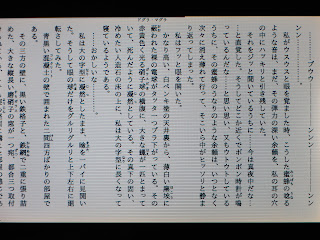 ドグラ・マグラ
…………ブウウ――――――ンンン――――――ンンンン
ン………………。
私がウスウスと眼を覚ました時、こうした蜜蜂の唸る
ような音は、まだ、その弾力の深い余韻を、私の耳の穴
の中にハッキリと引き残していた。
それをジッと聞いているうちに……今は真夜中だな
……と直覚した。そうしてどこか近くでボンボン時計が
鳴っているんだな……と思い思い、又もウトウトしている
うちに、その蜜蜂のうなりのような余韻は、いつとなく
次々に消え薄れて行って、そこいら中がヒッソリと静ま
り返ってしまった。
私はフッと眼を開いた。
かなり高い、白ペンキ塗の天井裏から、薄白い塵埃に
蔽われた裸の電球がタッタ一つブラ下がっている。その
赤黄色く光る硝子球の横腹に、大きな蠅が一匹とまって
いて、死んだように凝然としている。その真下の固い、
冷めたい人造石の床の上に、私は大の字型に長くなって
寝ているようである。
……おかしいな…………。
私は大の字型に凝然としたまま、瞼を一パイに見開い
た。そうして眼の球だけをグルリグルリと上下左右に廻
転さしてみた。
青黒い混凝土の壁で囲まれた二間四方ばかりの部屋で
ある。
その三方の壁に、黒い鉄格子と、鉄網で二重に張り詰
めた、大きな縦長い磨硝子の窓が一つ宛、都合三つ取付